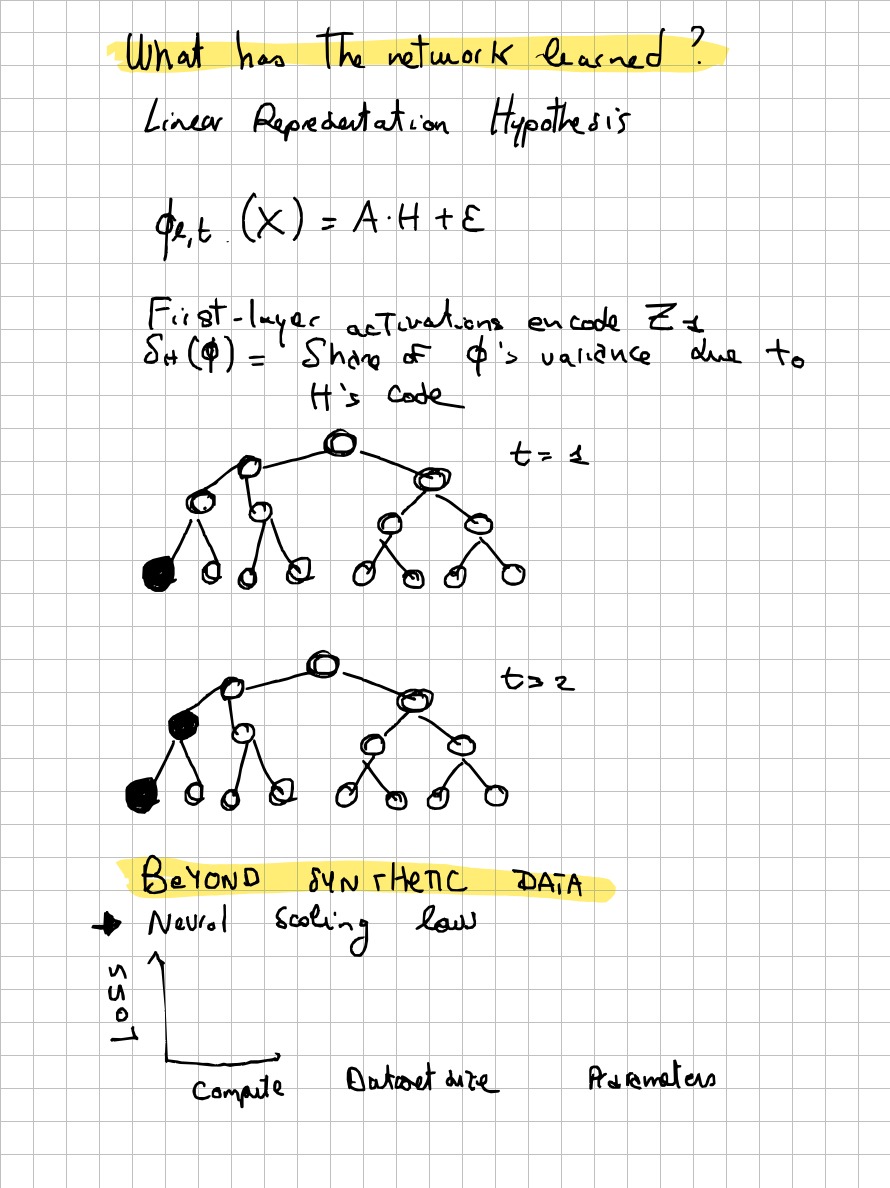 What has The network learned?
Linear Representation Hypothesis
ϕℓ,t (X) = A·H + ε
First-layer activations encode Z1
δH(ϕ) = Share of ϕ's variance due to
H's code
t = 1
t = 2
BEYOND SYNTHETIC DATA
→ Neural Scaling law
Loss
Compute Dataset size Parameters